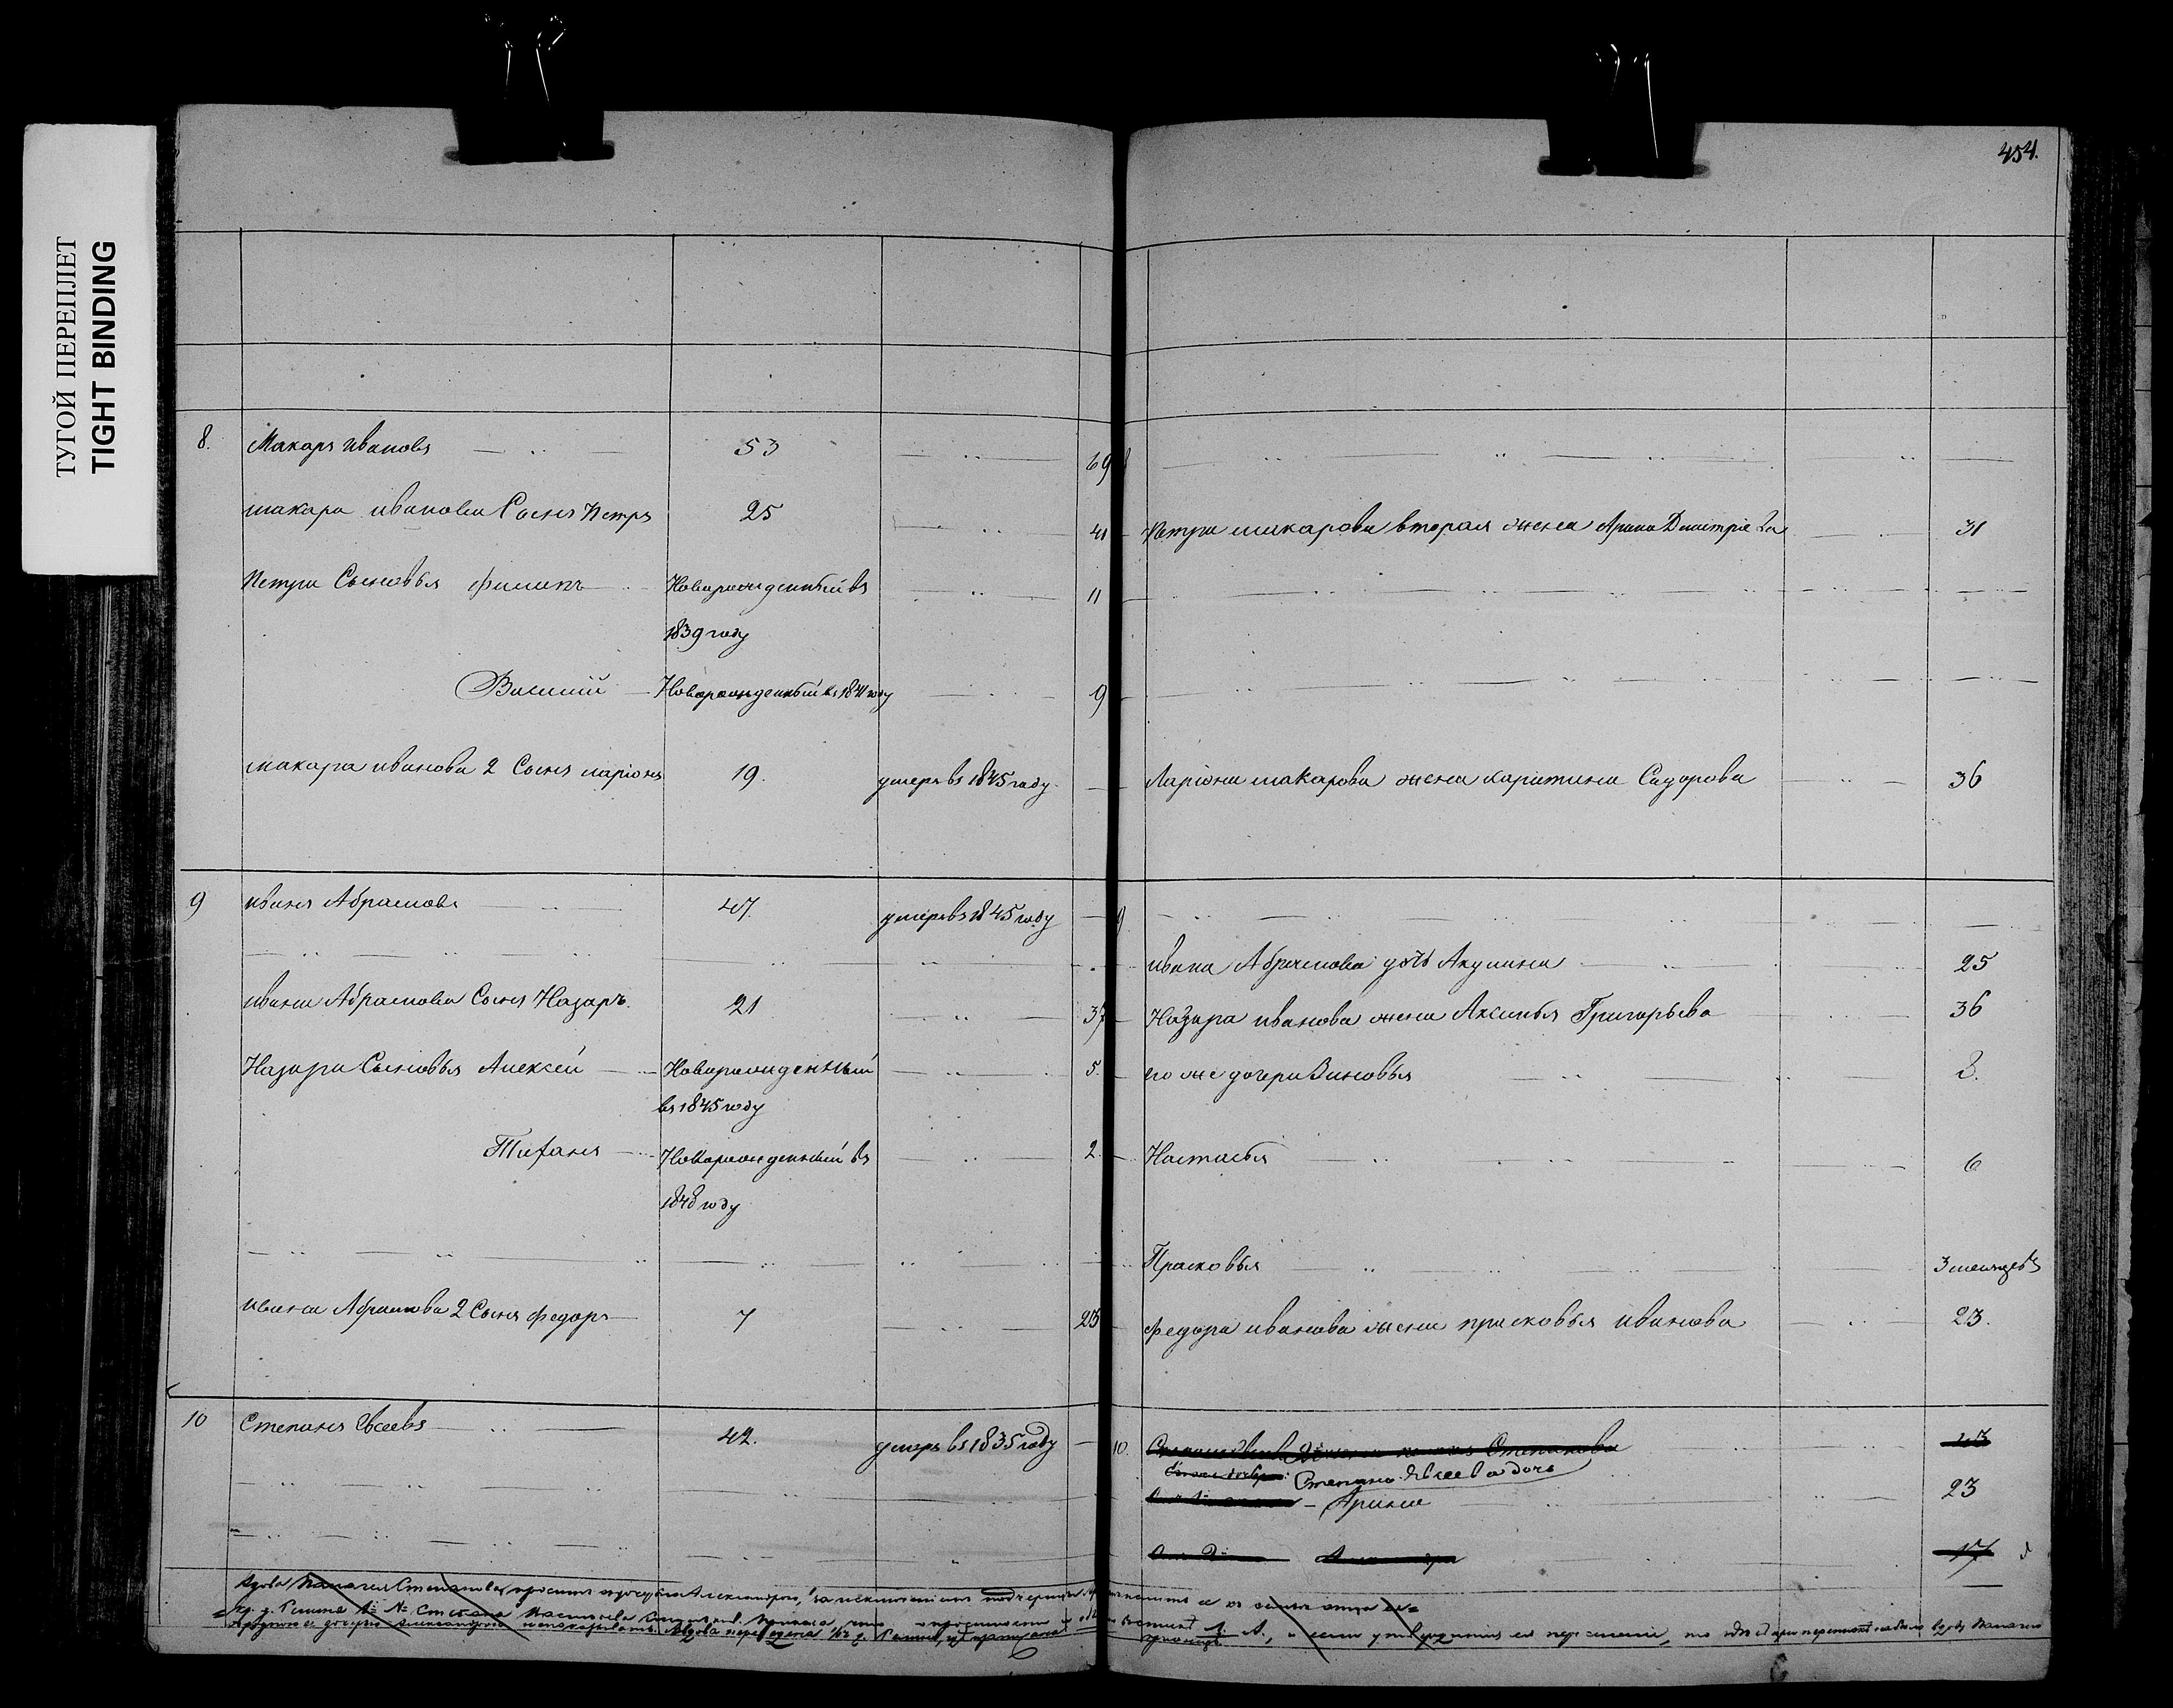 ТУГОЙ ПЕРЕПЛЕТ
TIGHT BINDING
454.
8. Макаръ ивановъ 53 69
макара иванова Сынъ Петръ 25 41
Петра Сыновья филипъ Новорожденный въ 11
1839 году
Василий Новорожденный въ 1841 году 9
макара иванова 2 Сынъ ларіонъ 19. умеръ въ 1845 году
9 иванъ Абрамовъ 47. умеръ въ 1845 году
ивана Абрамова Сынъ Назаръ. 21 37
Назара Сыновья Алексей Новорожденный 5.
въ 1845 году
Тифанъ Новорожденный въ 2
1848 году
ивана Абрамова 2 Сынъ федоръ 7 23
10 Степанъ Евсеевъ 42. умеръ въ 1835 году
8
Петра макарова вторая жена Арина Дмитріева 31
Ларіона макарова жена харитина Сидорова 36
9
ивана Абрамова дочь Акулина 25
Назара иванова жена Аксинья Григорьева 36
его же дочери Зиновья 8.
Настасья 6
Прасковья 3 месяцевъ
федора иванова жена прасковья иванова 23.
10. Степанова 43
Степана Евсеева дочь
Арина 23
17
Вдова Степанова просит